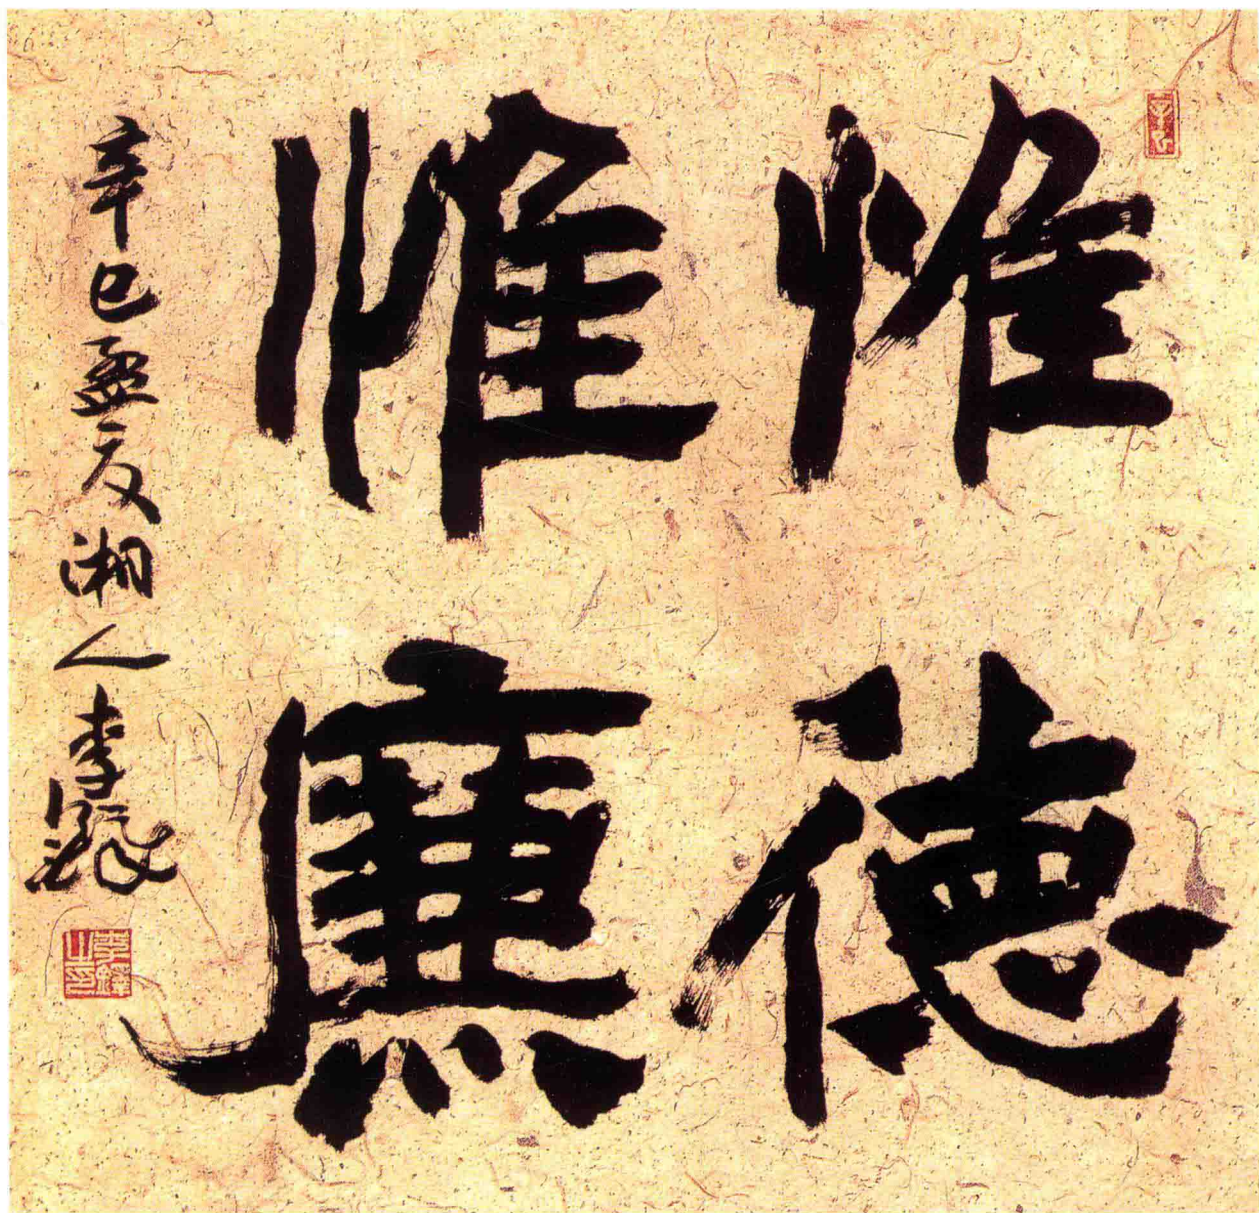 惟德
惟廉
辛巳孟夏湘人李鐸
李鐸之印